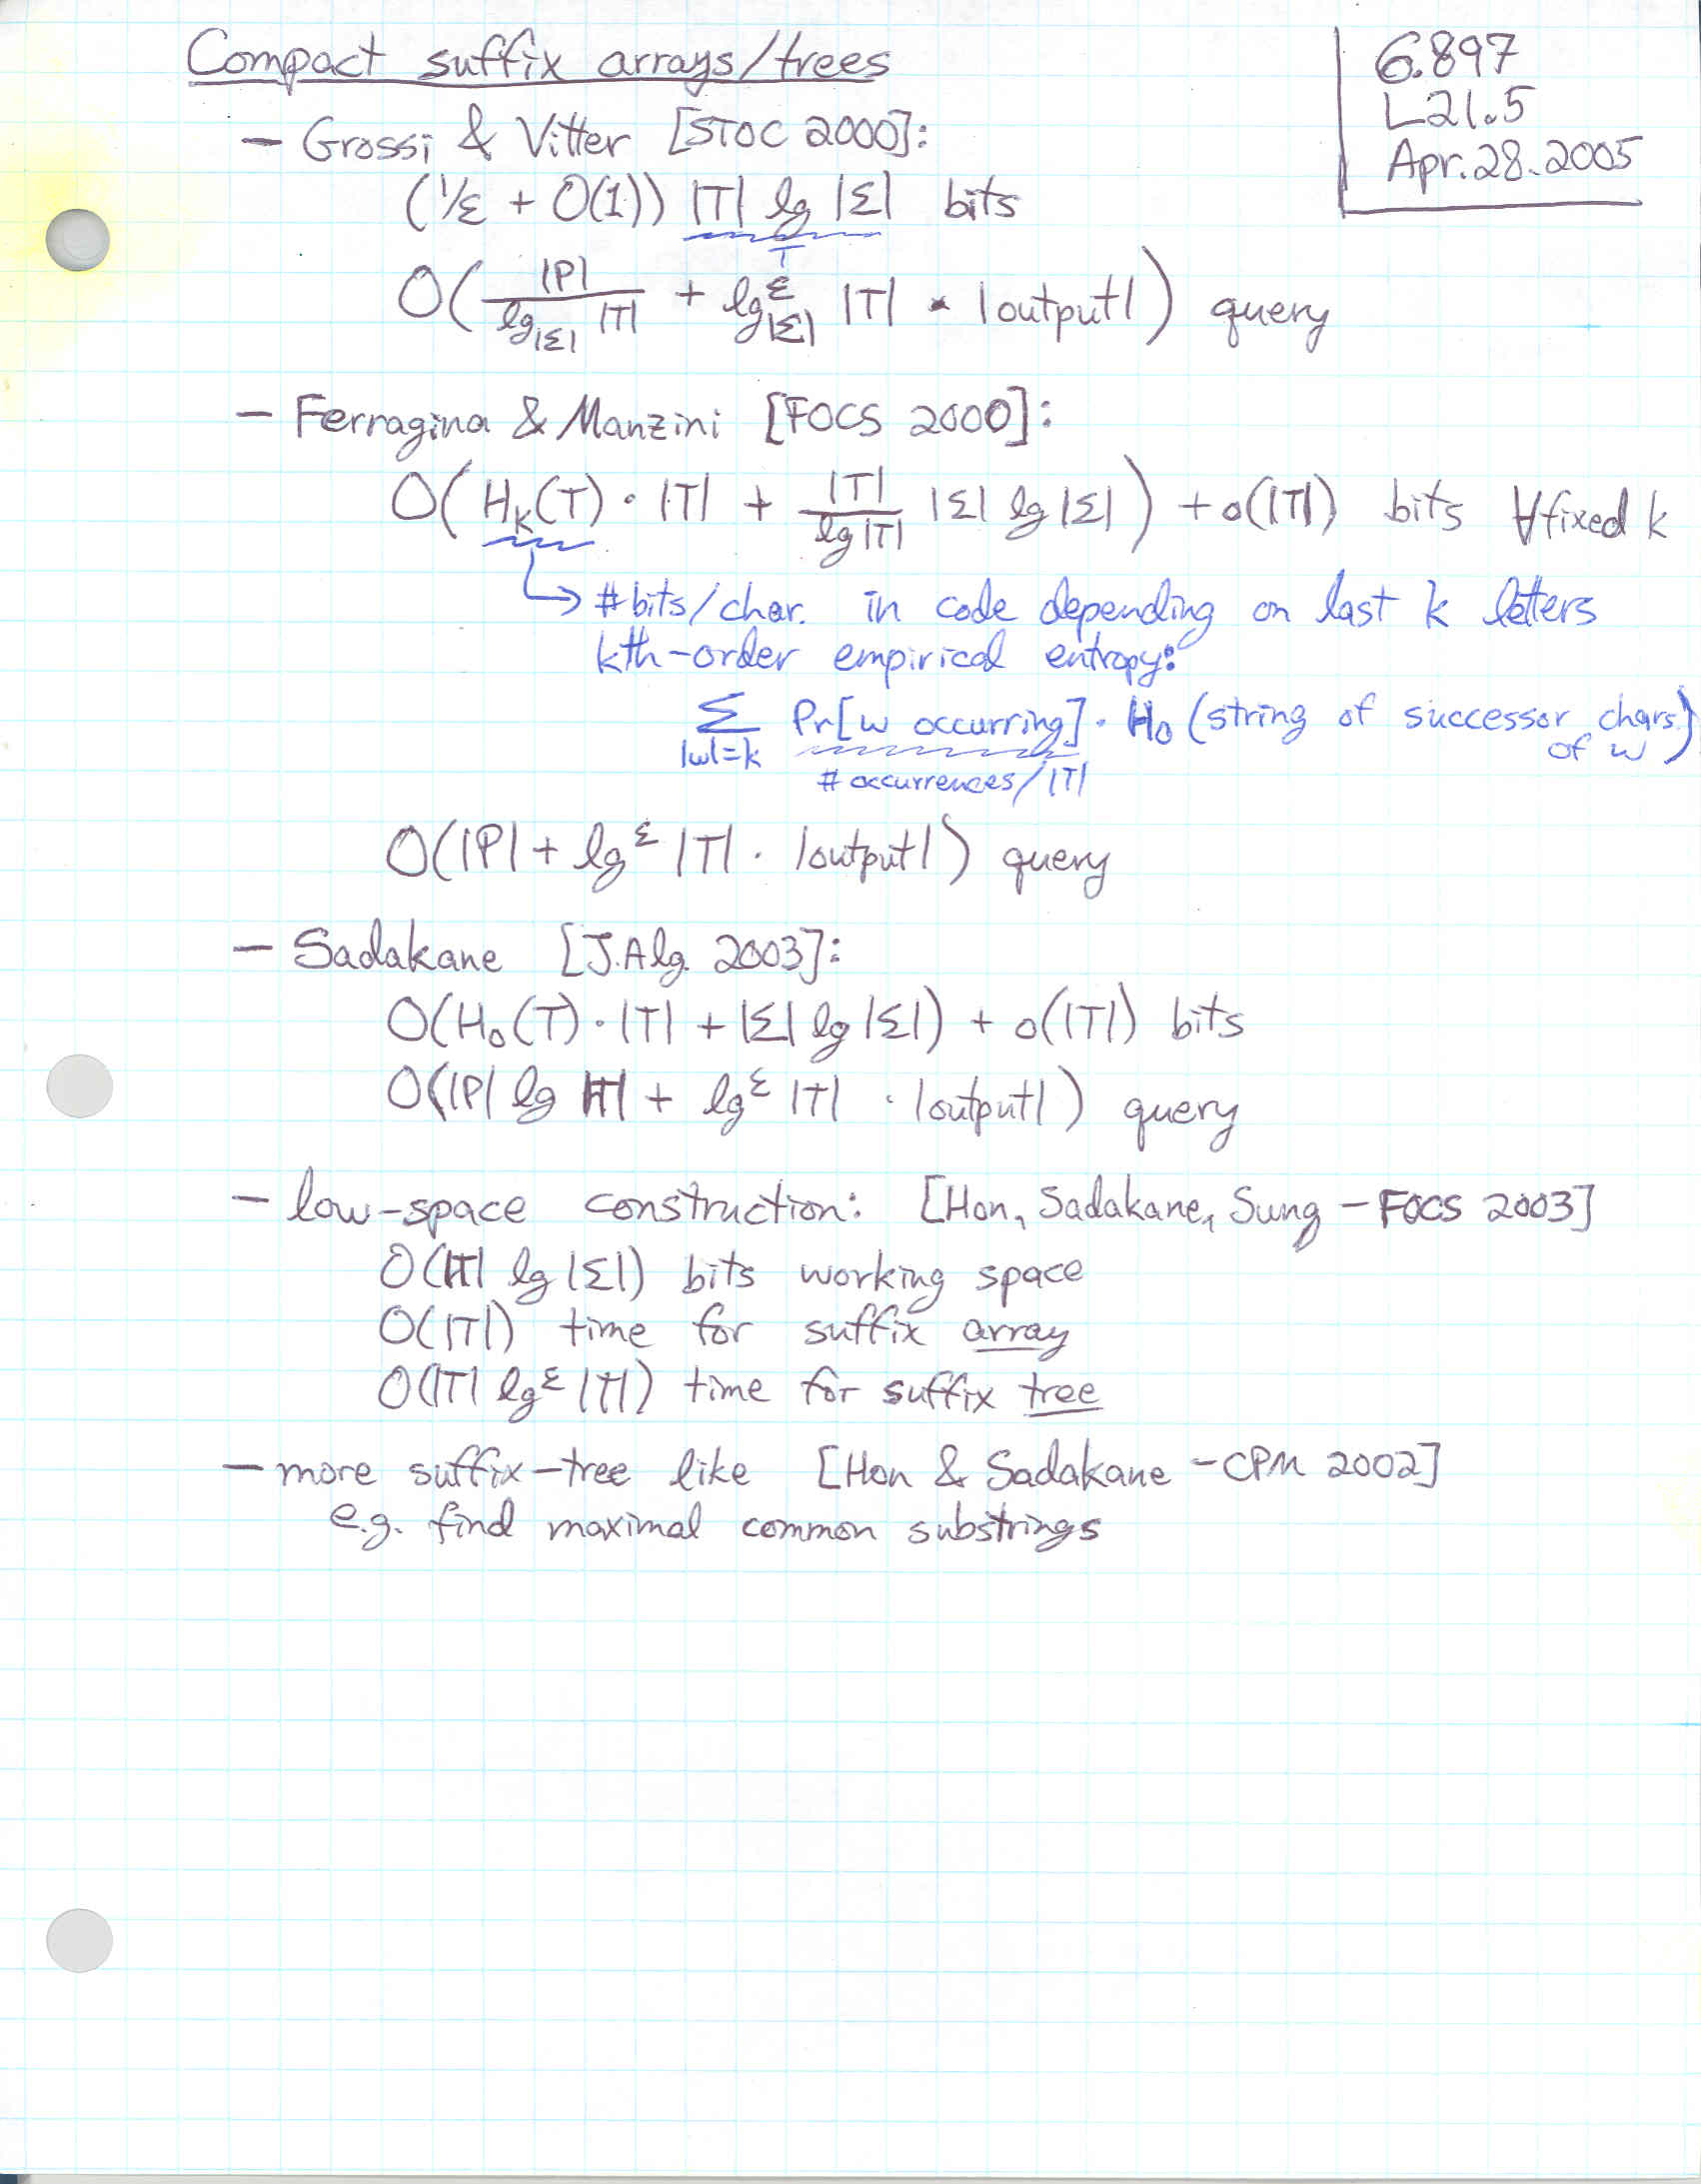 Compact suffix arrays/trees
6.897
L21.5
Apr.28.2005
– Grossi & Vitter [STOC 2000]:
(1/ε + O(1)) |T| lg |Σ| bits
T
O(|P|/lg_|Σ| |T| + lg^ε_|Σ| |T| · |output|) query
– Ferragina & Manzini [FOCS 2000]:
O(H_k(T) · |T| + |T|/lg|T| |Σ| lg |Σ|) + o(|T|) bits ∀ fixed k
↳ #bits/char. in code depending on last k letters
kth-order empirical entropy:
Σ_|w|=k Pr[w occurring] · H₀ (string of successor chars. of w)
# occurrences/|T|
O(|P| + lg^ε |T| · |output|) query
– Sadakane [J.Alg. 2003]:
O(H₀(T) · |T| + |Σ| lg |Σ|) + o(|T|) bits
O(|P| lg |T| + lg^ε |T| · |output|) query
– low-space construction: [Hon, Sadakane, Sung – FOCS 2003]
O(|T| lg |Σ|) bits working space
O(|T|) time for suffix array
O(|T| lg^ε |T|) time for suffix tree
– more suffix-tree like [Hon & Sadakane – CPM 2002]
e.g. find maximal common substrings